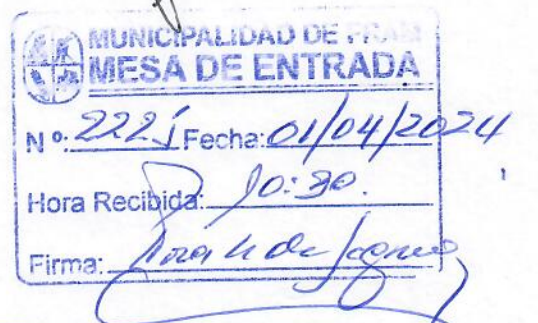 MUNICIPALIDAD DE FRAM
MESA DE ENTRADA
N º: Fecha: 01/04/2024
Hora Recibida: 10:30.
Firma: